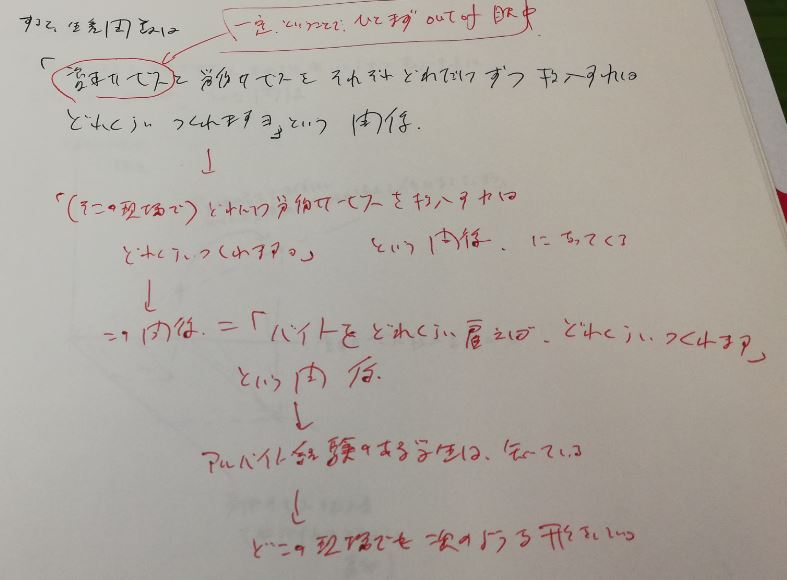 すると、生産関数は
一定、ということで、ひとまず out of 眼中
「資本サービスと労働サービスを それぞれ どれだけずつ 投入すれば
どれくらい つくれますよ」という 関係.
↓
「(そこの現場で) どれだけ労働サービスを投入すれば
どれくらいつくれますか。」 という関係. になってくる
↓
この関係. =「バイトをどれくらい雇えば、どれくらい、つくれますか」
という関係.
↓
アルバイト経験のある学生は、知っている
↓
どこの現場でも 次のような形をしている